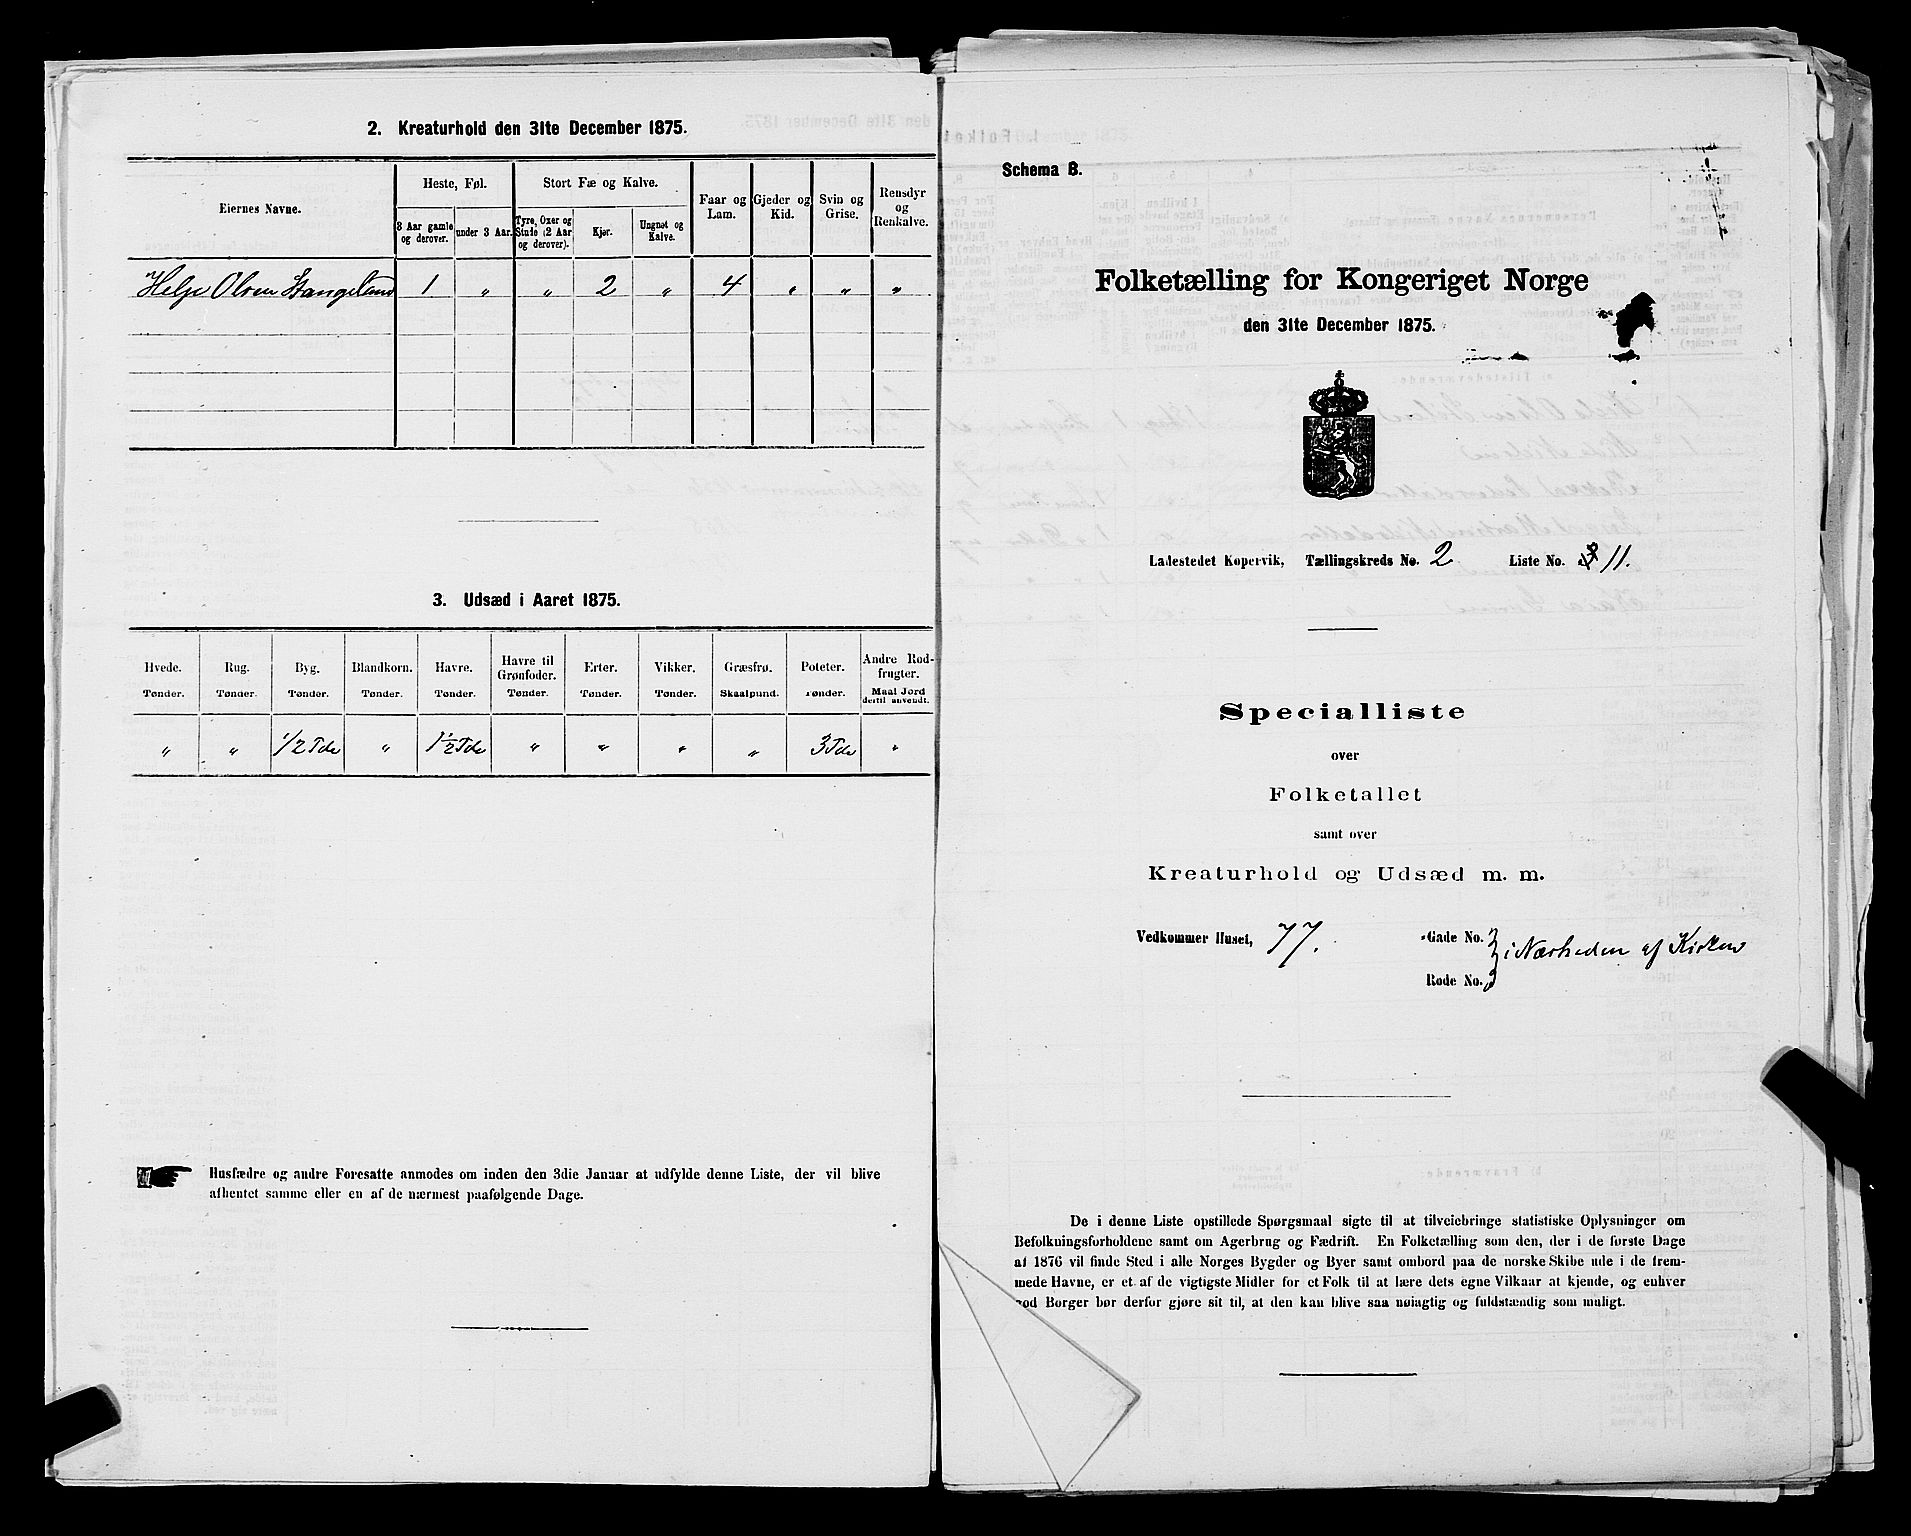 2. Kreaturhold den 31te December 1875.
Eiernes Navne.
Heste, Føl.
Stort Fæ og Kalve.
Faar og Lam.
Gjeder og Kid.
Svin og Grise.
Rensdyr og Renkalve.
3 Aar gamle og derover.
under 3 Aar.
Tyre, Oxer og Stude (2 Aar og derover).
Kjør.
Ungnøt og Kalve.
Helge Olsen Stangeland 1 " " 2 " 4 " " "
3. Udsæd i Aaret 1875.
Hvede. Rug. Byg. Blandkorn. Havre. Havre til Grønfoder. Erter. Vikker. Græsfrø. Poteter. Andre Rodfrugter.
Tønder. Tønder. Tønder. Tønder. Tønder. Tønder. Tønder. Tønder. Skaalpund. Tønder. Maal Jord dertil anvendt.
" " 1/2 Tde " 1 1/2 Tde " " " " 3 Tde "
Husfædre og andre Foresatte anmodes om inden den 3die Januar at udfylde denne Liste, der vil blive
afhentet samme eller en af de nærmest paafølgende Dage.
Schema B.
Folketælling for Kongeriget Norge
den 31te December 1875.
Ladestedet Kopervik, Tællingskreds No. 2 Liste No. 11.
Specialliste
over
Folketallet
samt over
Kreaturhold og Udsæd m. m.
Vedkommer Huset, 77. Gade No.
i Nærheden af Kirken
Rode No.
De i denne Liste opstillede Spørgsmaal sigte til at tilveiebringe statistiske Oplysninger om
Befolkningsforholdene samt om Agerbrug og Fædrift. En Folketælling som den, der i de første Dage
af 1876 vil finde Sted i alle Norges Bygder og Byer samt ombord paa de norske Skibe ude i de frem-
mede Havne, er et af de vigtigste Midler for et Folk til at lære dets egne Vilkaar at kjende, og enhver
god Borger bør derfor gjøre sit til, at den kan blive saa nøiagtig og fuldstændig som muligt.